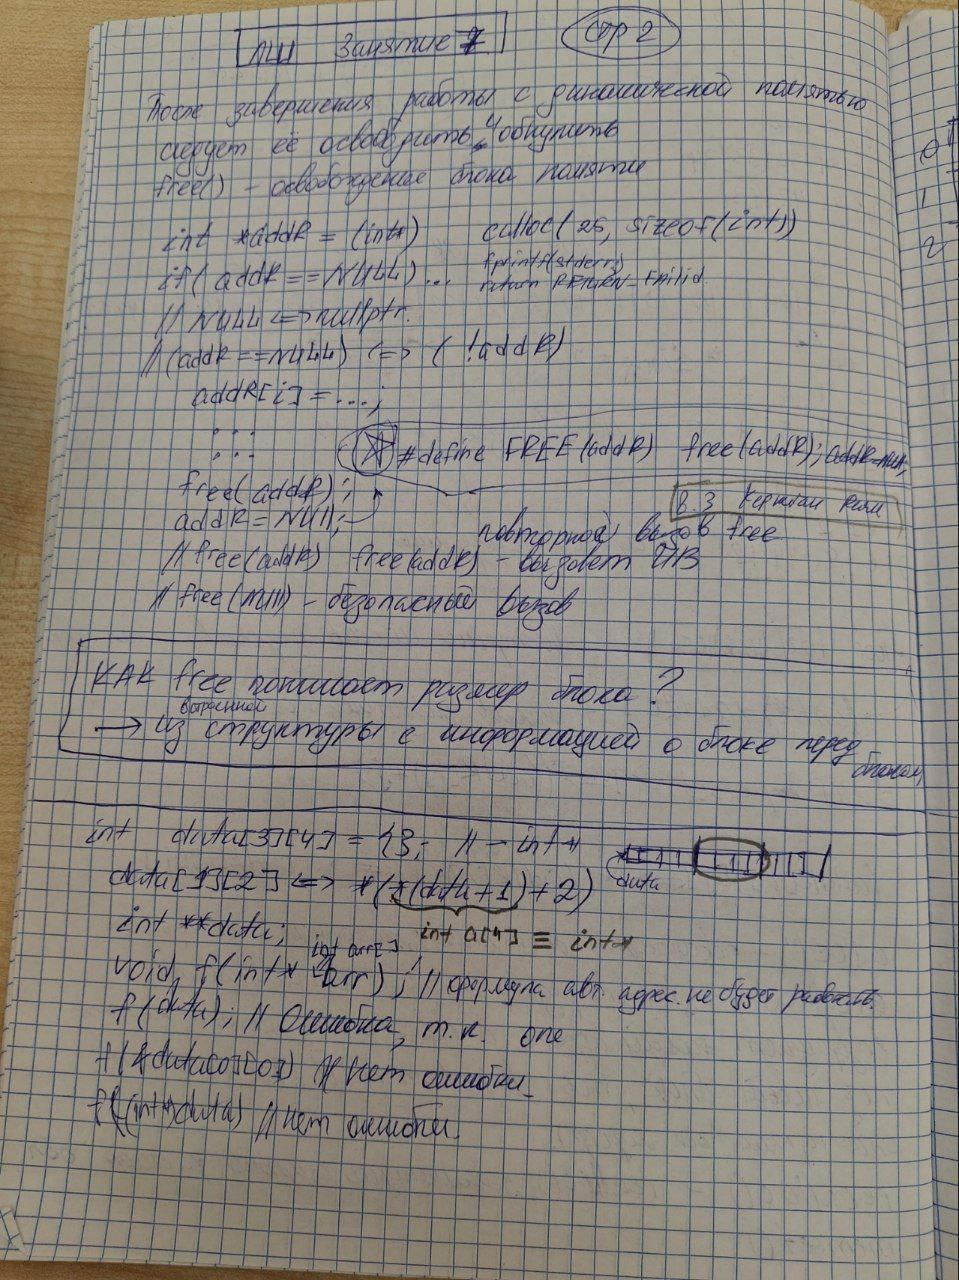 ЛШ Занятие 7 стр 2
После завершения работы с динамической памятью
следует её освободить и обнулить
free() - освобождение блока памяти
int *addR = (int*) calloc(25, sizeof(int))
if( addR == NULL)... fprintf(stderr)
return RETURN_
// NULL <=> nullptr.
// (addR == NULL) <=> ( !addR)
addR[i] = ...;
...
...
#define FREE(addR) free(addR); addR=NULL;
free(addR);
addR = NULL;
8.3 Керниган Ричи
повторной вызов free
// free(addR) free(addR) - вызовет
// free(NULL) - безопасный вызов
КАК free понимает размер блока?
встроенной
→ из структуры с информацией о блоке перед
блоком,
int data[3][4] = {}; // - int*
data
data[1][2] <=> *(*(data+1)+2)
int a[4] ≡ int*
int **data;
int arr[]
void f(int* arr); // формула авт. адрес. не будет работать.
f(data); // Ошибка, т.к.
f(&data[0][0]) // нет ошибки
f((int*)data) // нет ошибки.